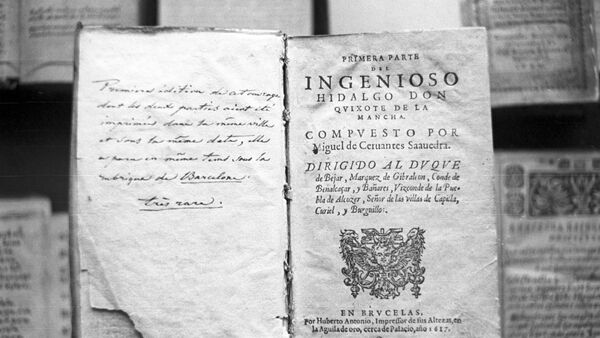 Première édition de cet ouvrage
dont les deux parties aient été
imprimées dans la même ville
et sous la même date, elle
a paru en même tems sous la
rubrique de Barcelone.
très rare.
PRIMERA PARTE
DEL
INGENIOSO
HIDALGO DON
QVIXOTE DE LA
MANCHA.
COMPVESTO POR
Miguel de Ceruantes Saauedra.
DIRIGIDO AL DVQVE
de Bejar, Marquez de Gibraleon, Conde de
Benalcaçar, y Bañares, Vizconde de la Pue-
bla de Alcozer, Señor de las villas de Capilla,
Curiel, y Burguillos.
EN BRVCELAS,
Por Huberto Antonio, Impressor de sus Altezas, en
la Aguila de oro, cerca de Palacio, año 1617.